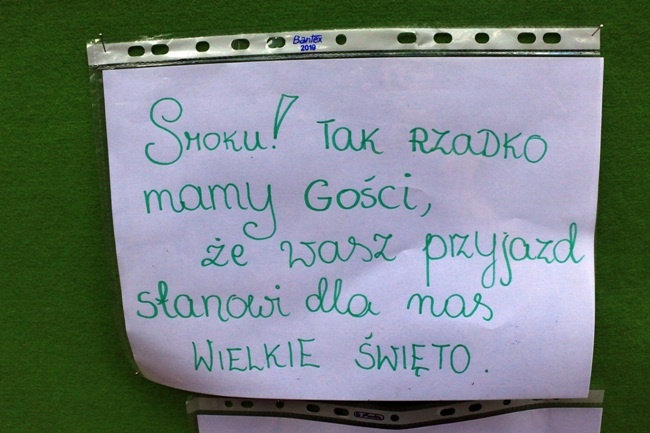 Bantex
2019
Smoku! Tak RZADKO
mamy Gości,
że wasz przyjazd
stanowi dla nas
WIELKIE ŚWIĘTO.